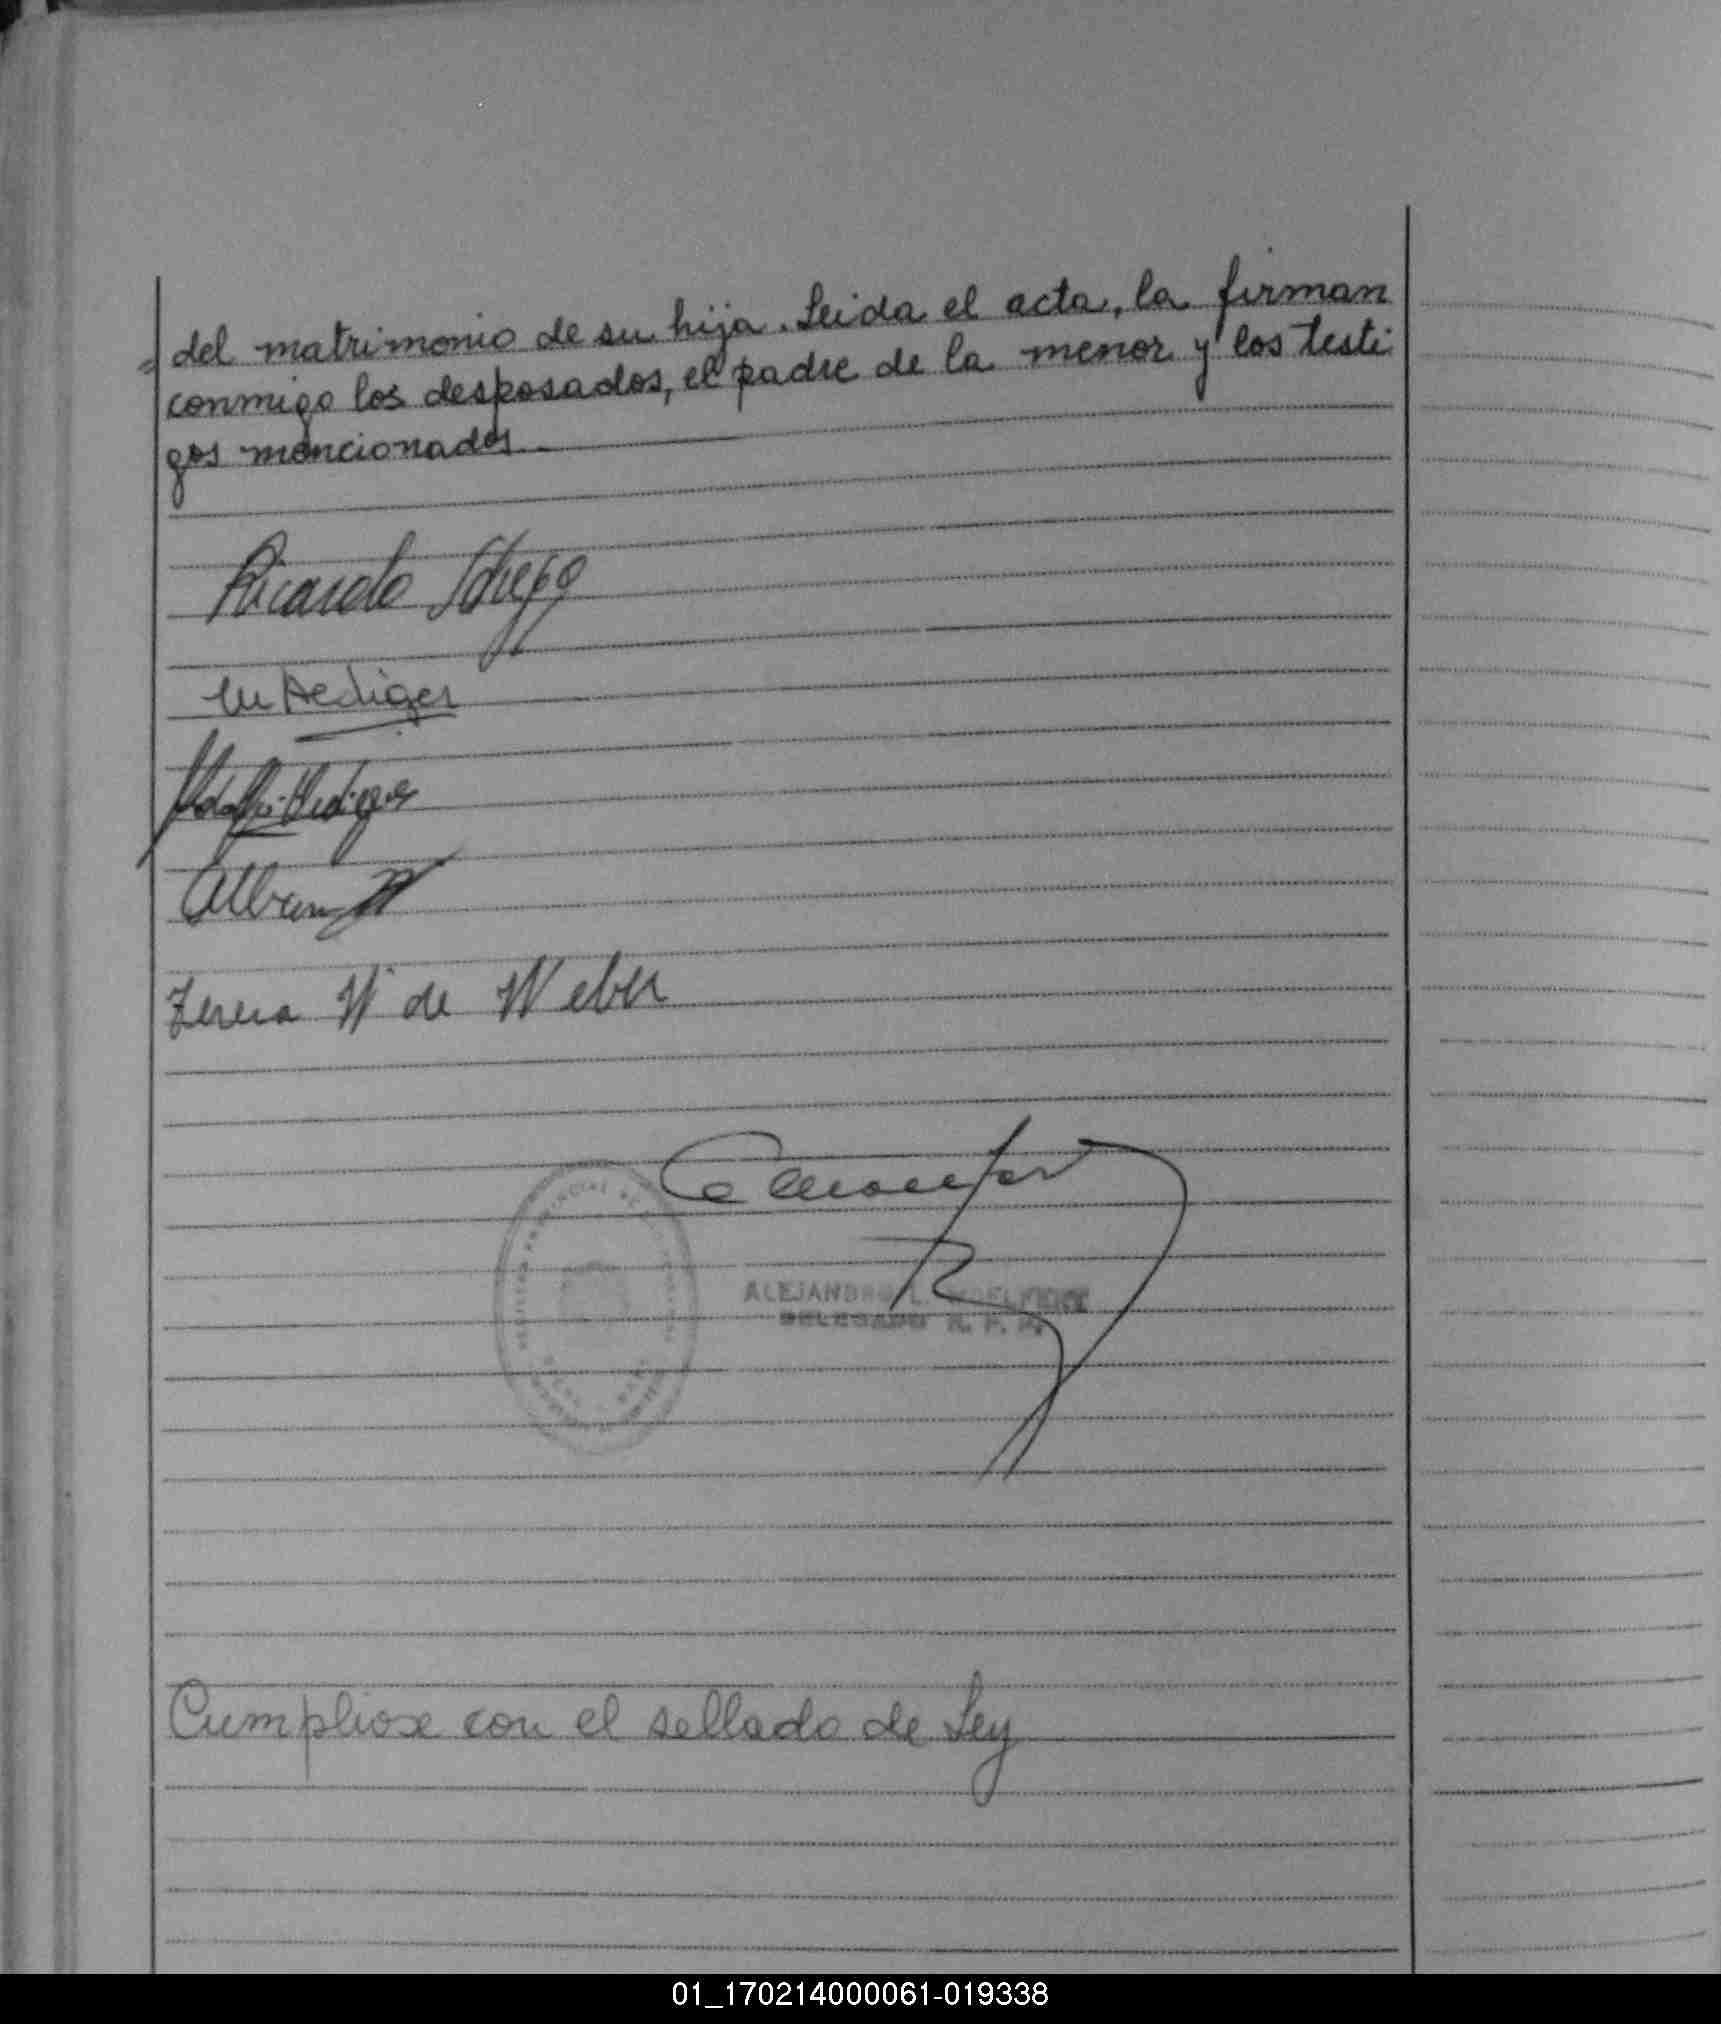 del matrimonio de su hija. Leida el acta, la firman
conmigo los desposados, el padre de la menor y los testi
gos mencionados.
Ricardo
Hediger
Adolfo Hediger
Alban W
Teresa W de Weber
ALEJANDRO L.
DELEGADO R. P. P.
Cumpliose con el sellado de Ley
01_170214000061-019338